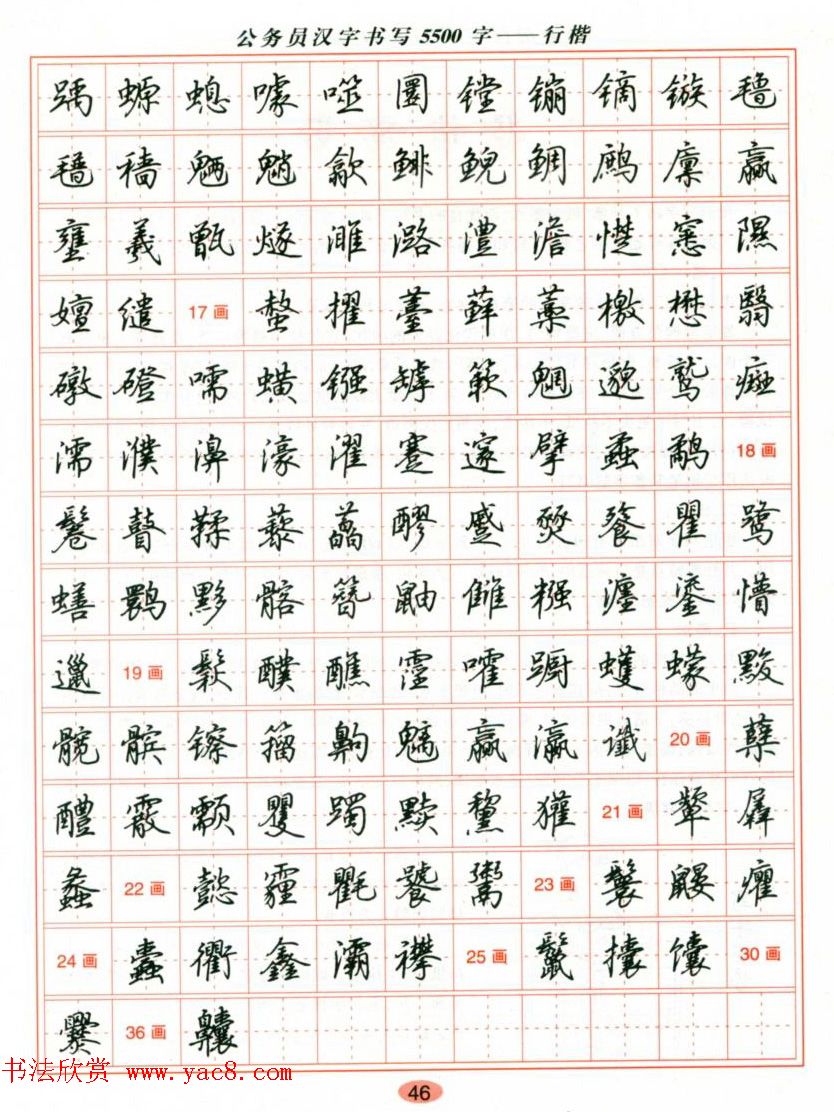 公务员汉字书写5500字——行楷
踽 螈 螅 噱 噬 圜 镗 镚 镝 镞 氇
氆 穑 魉 魈 歙 鲱 鲵 鲷 鹧 廪 嬴
壅 羲 甑 燧 濉 潞 澧 澹 憷 窸 隰
嬗 缱 17画 螯 擢 薹 藓 藁 檄 懋 翳
礅 磴 嚅 蟥 镪 罅 簌 魍 邈 鹫
濡 濮 濞 濠 濯 蹇 邃 擘 螽 鹬 18画
鬈 瞽 鞣 藜 藠 醪 蹙 燹 餮 瞿 鹭
蟮 鹮 黟 髂 簪 鼬 雠 糨 瀍 鎏 懵
邋 19画 鬏 醭 醮 霪 嚯 蹰 蠖 蠓 黢
髋 髌 镲 籀 齁 魑 羸 瀛 谶 20画 蘖
醴 霰 颥 矍 躅 黩 黧 獾 21画 颦 羼
蠡 22画 懿 霾 氍 饕 鬻 23画 鬟 鼹 癯
24画 蠹 衢 鑫 灞 襻 25画 鬣 攮 馕 30画
爨 36画 齉
书法欣赏 www.yac8.com
46